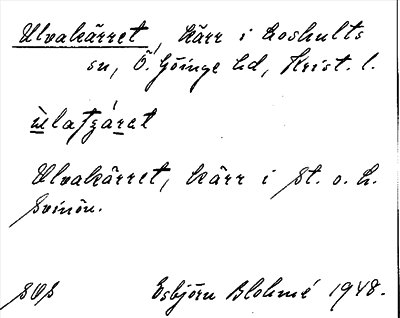 Ulvakärret, kärr i Loshults
sn, Ö. Göinge hd, Krist. l.
Ulvakärret, kärr i St. o. L.
Svinön.
Esbjörn Blohmé 1948.